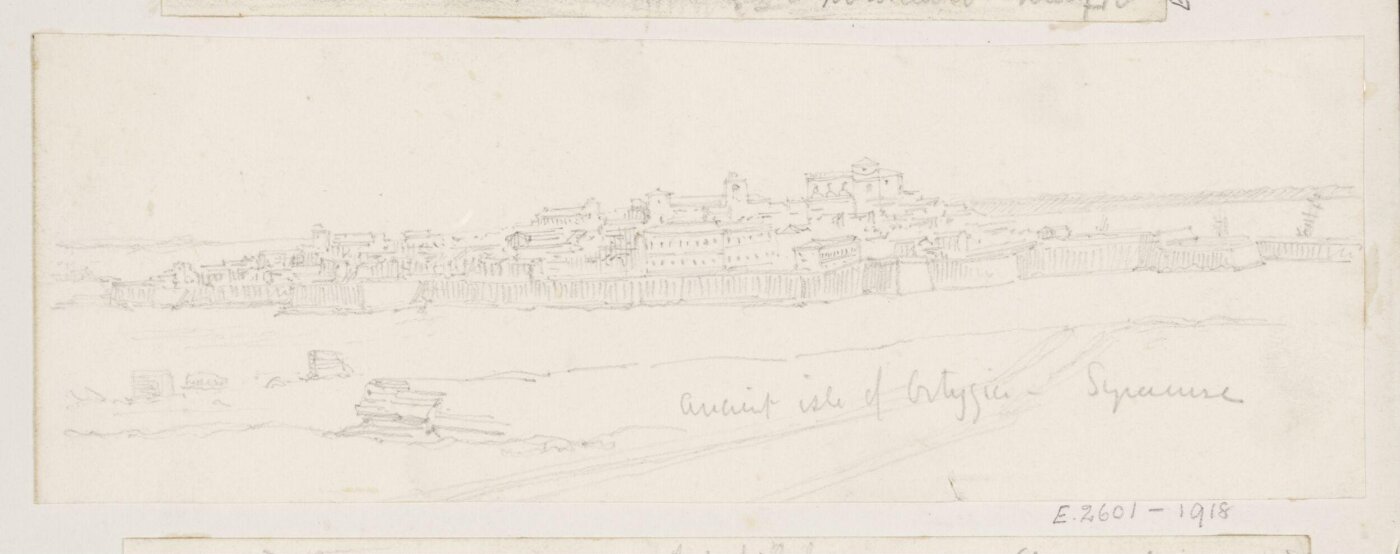 ancient isle of Ortygia - Syracuse
E.2601-1918